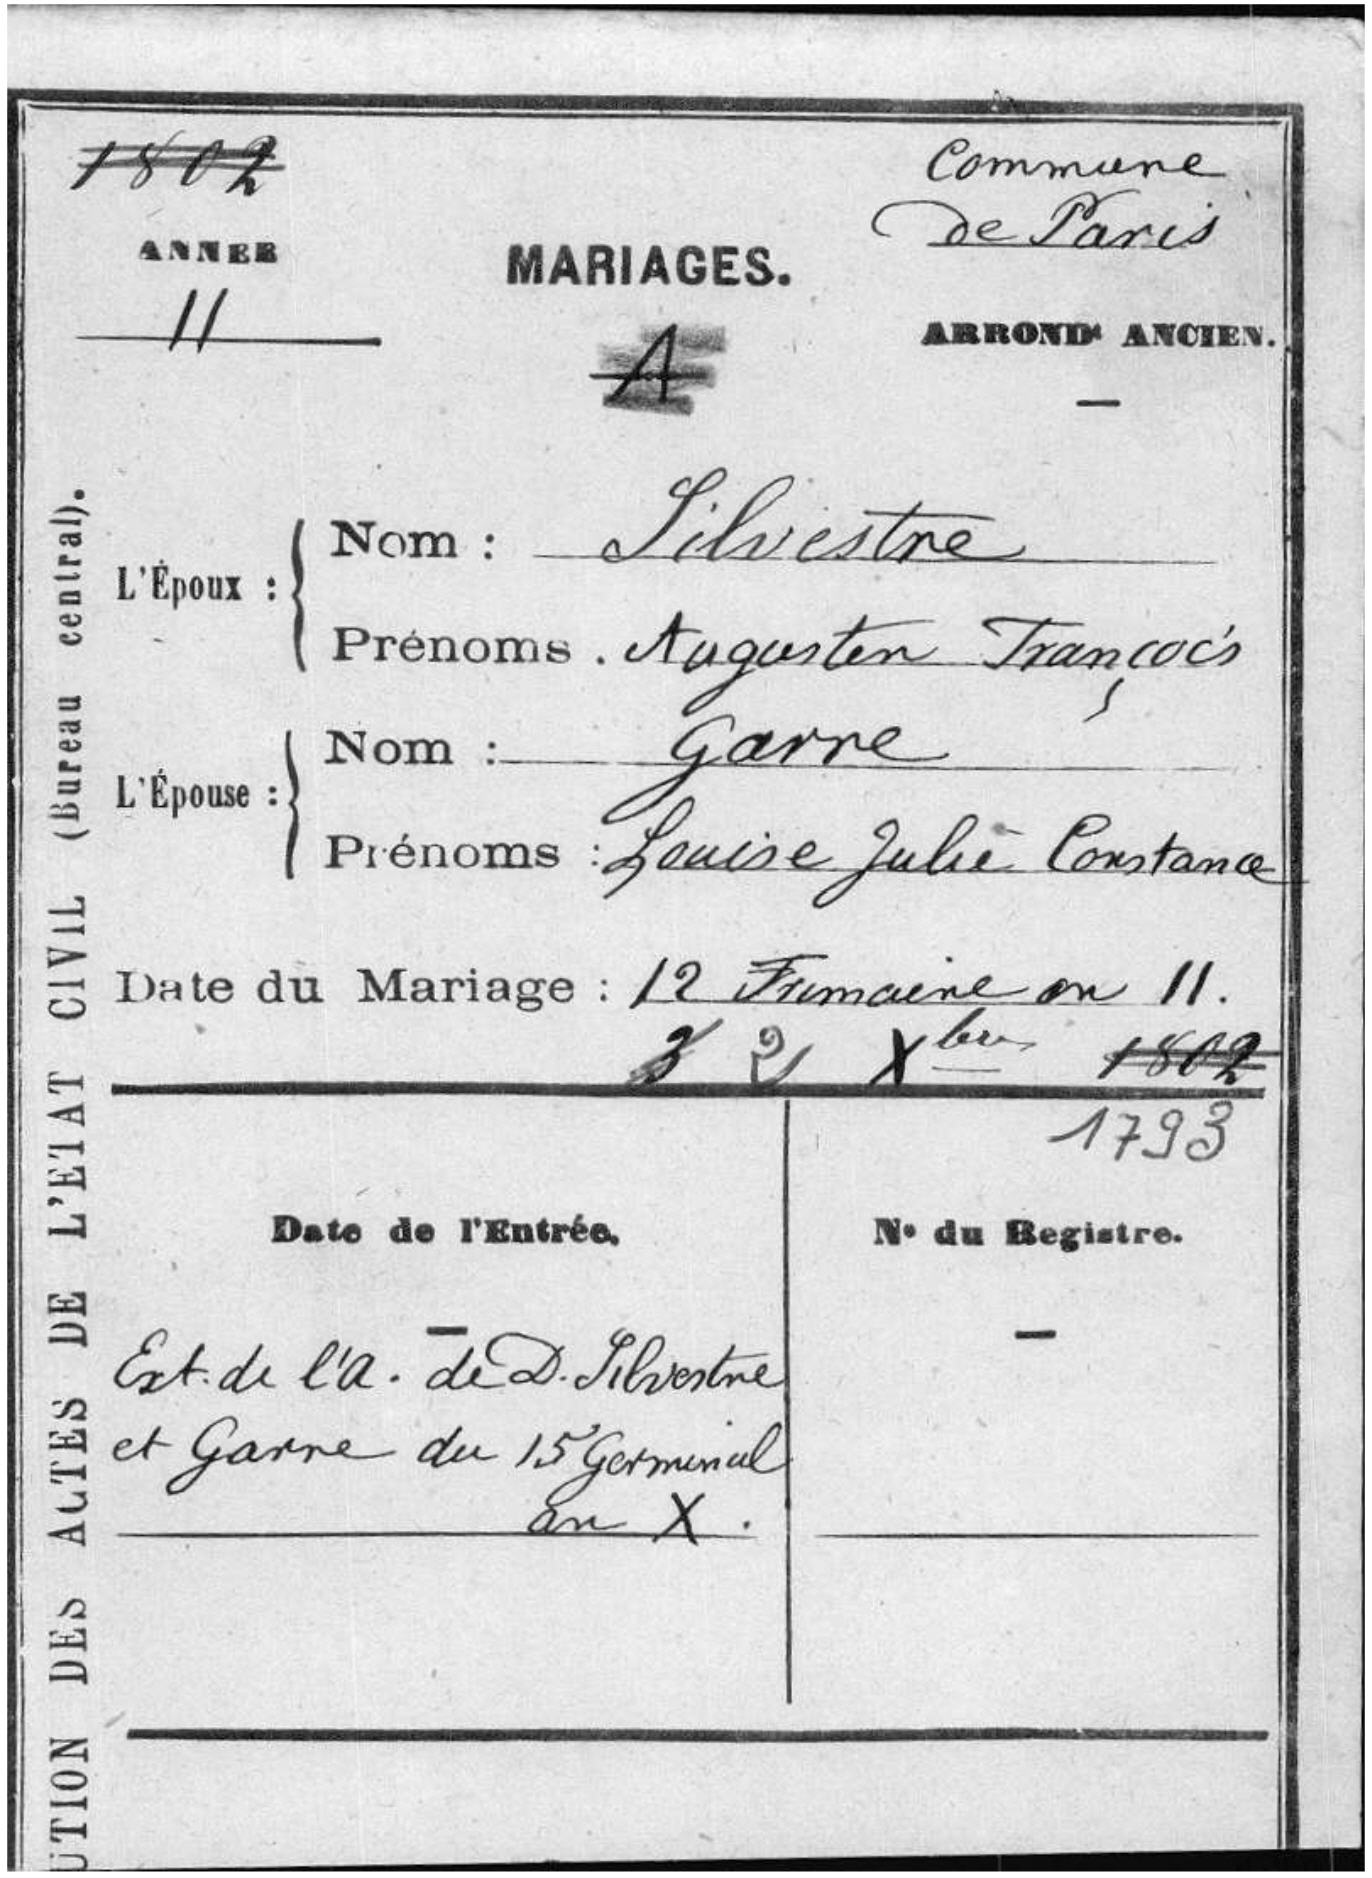 1802
Commune
de Paris
ANNEE
11
MARIAGES.
A
ARRONDt ANCIEN.
L'Époux :
Nom : Silvestre
Prénoms . Augustin François
L'Épouse :
Nom : Garre
Prénoms : Louise Julie Constance
Date du Mariage : 12 Frimaire an 11.
3 2 Xbre 1802
1793
Date de l'Entrée.
No du Registre.
Ext. de l'a. de D. Silvestre
et Garre du 15 Germinal
an X.
UTION DES ACTES DE L'ETAT CIVIL (Bureau central).